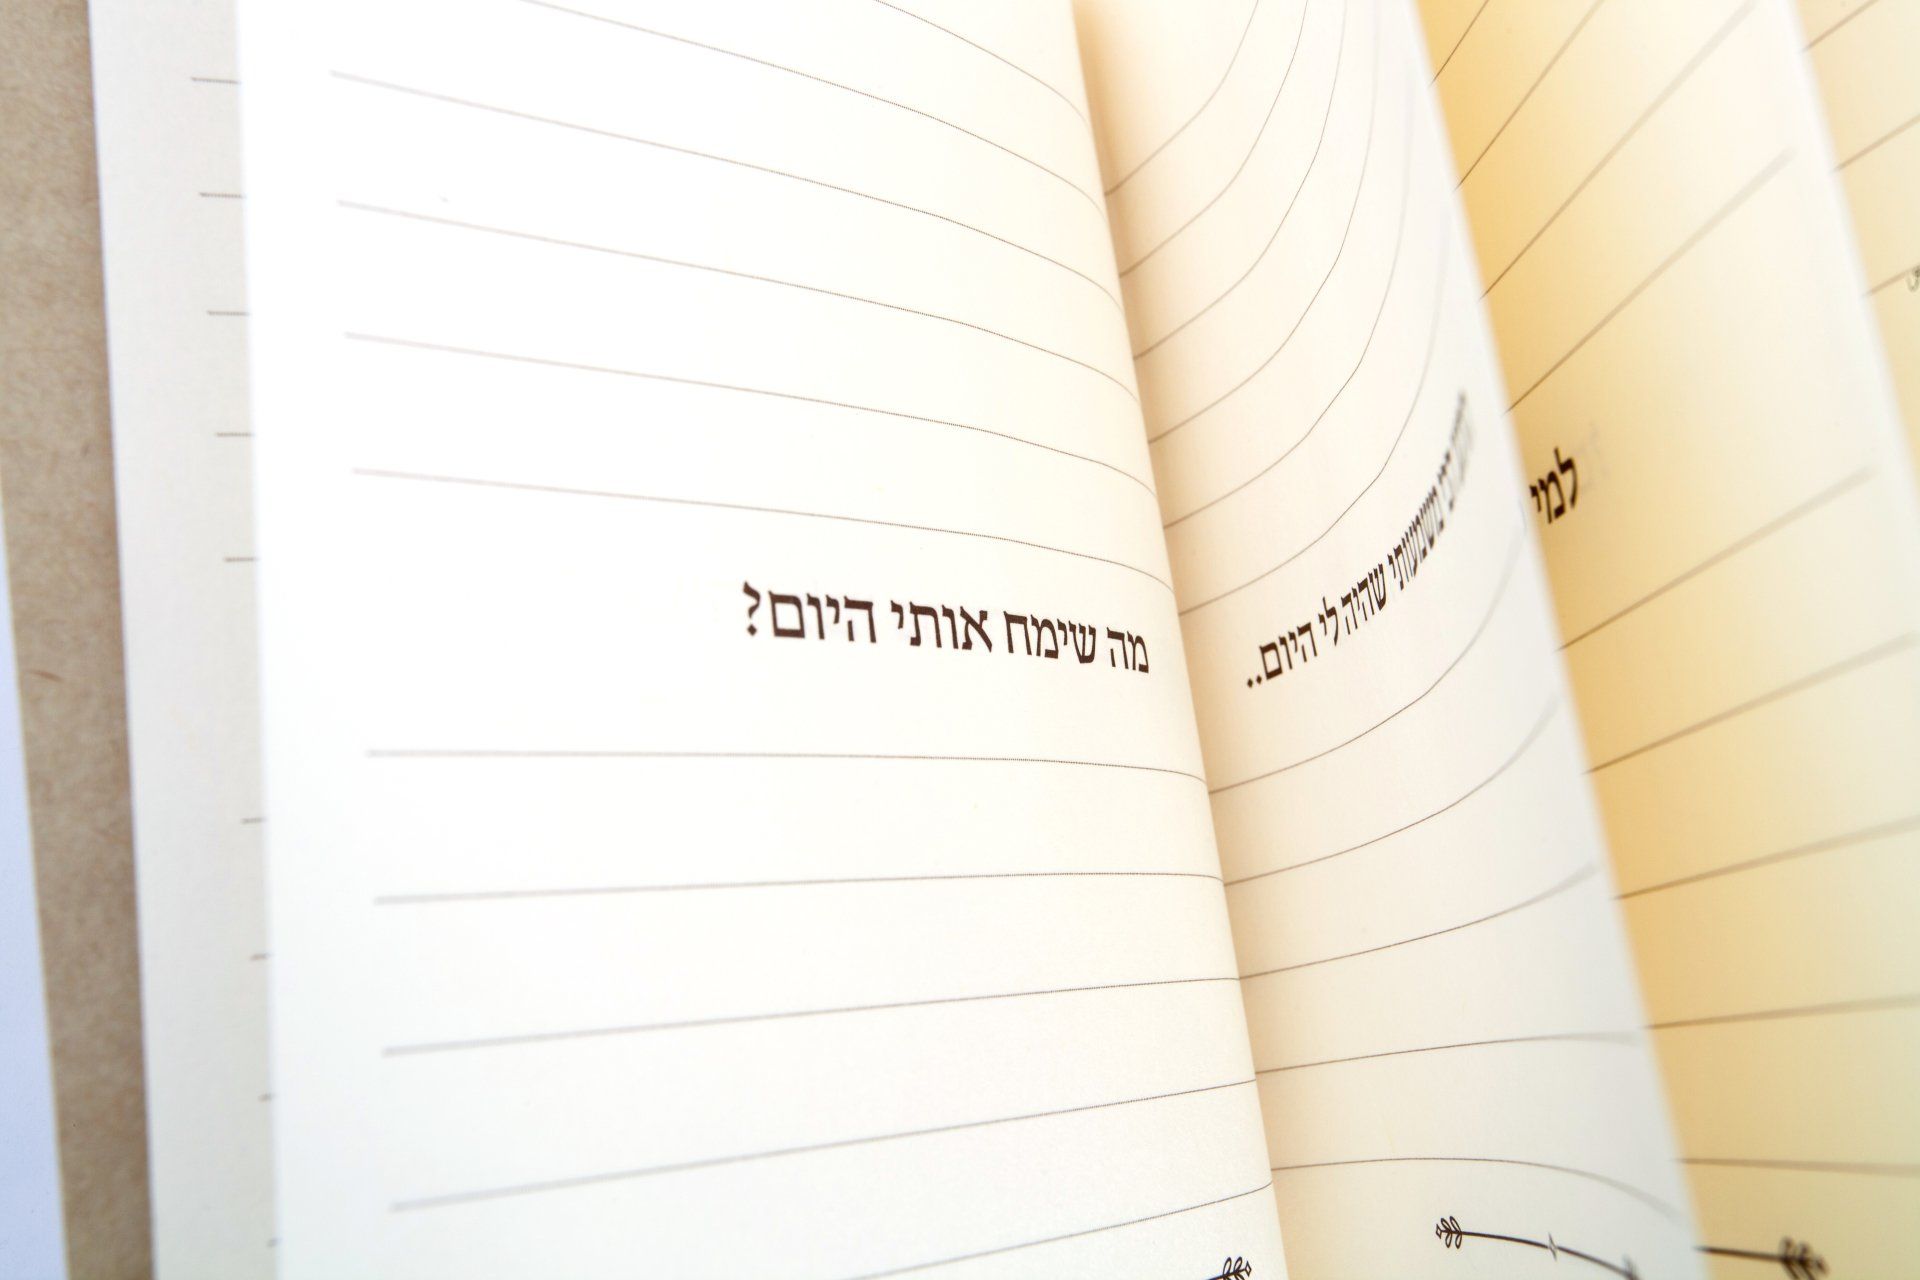 מה שימח אותי היום?
משמעותי שהיה לי היום..
למי